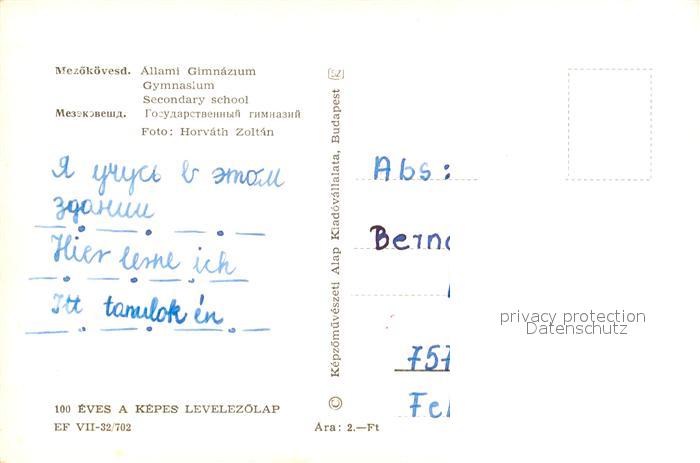 Mezőkövesd. Állami Gimnázium
Gymnasium
Secondary school
Мезэковешд. Государственный гимназий
Foto: Horváth Zoltán
Я учусь в этом
здании
Hier lerne ich
Itt tanulok én
100 ÉVES A KÉPES LEVELEZŐLAP
EF VII-32/702
Képzőművészeti Alap Kiadóvállalata, Budapest
Ára: 2.—Ft
Abs:
Bern
757
Fel
privacy protection
Datenschutz